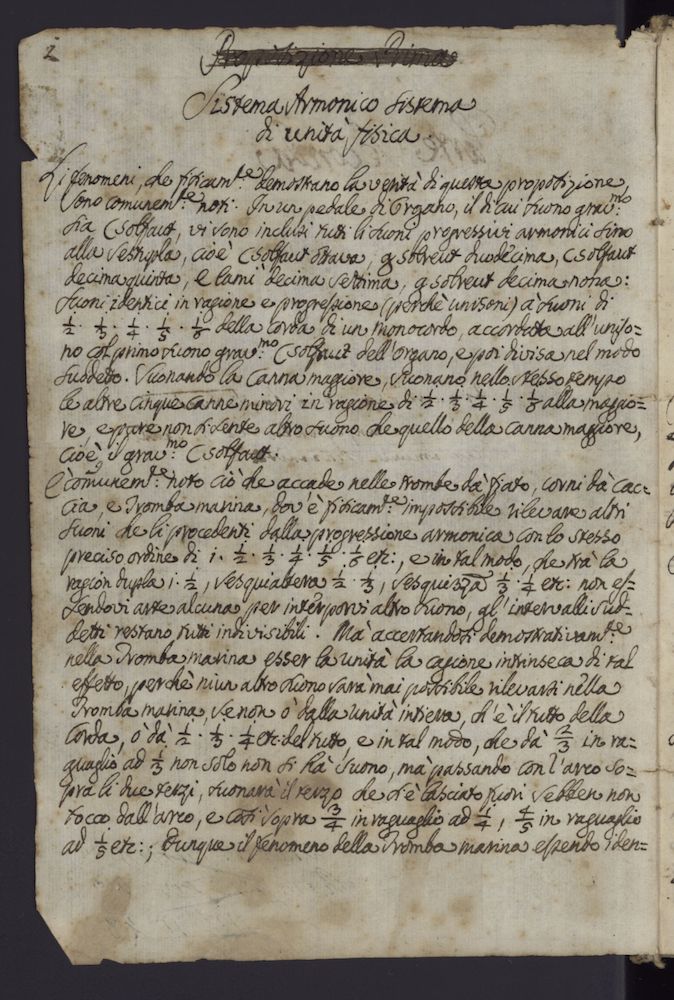 2
Proposizione Prima
Sistema Armonico sistema
di unità fisica.
Li fenomeni, che fisicam.te demostrano la verità di questa proposizione,
sono comunem.te noti. In un pedale di Organo, il di cui suono grav.mo
sia Csolfaut, vi sono inclusi tutti li suoni progressivi armonici sino
alla sestupla, cioè Csolfaut ottava, gsolreut duodecima, Csolfaut
decima quinta, e lamì decima settima, gsolreut decima nona:
suoni identici in ragione e progressione (perchè unisoni) à suoni di
1/2 · 1/3 · 1/4 · 1/5 · 1/6 della corda di un monocordo, accordata all'uniso=
no col primo suono grav.mo Csolfaut dell'organo, e poi divisa nel modo
suddetto. Suonando la Canna magiore, suonano nello stesso tempo
le altre cinque canne minori in ragione di 1/2 · 1/3 · 1/4 · 1/5 · 1/6 alla maggio=
re, e pure non si sente altro suono che quello della canna magiore,
cioè il grav.mo Csolfaut.
È comunem.te noto ciò che accade nelle trombe dà fiato, corni dà cac=
cia, e Tromba marina, dov'è fisicam.te impossibile rilevare altri
suoni che li procedenti dalla progressione armonica con lo stesso
preciso ordine di 1 · 1/2 · 1/3 · 1/4 · 1/5 · 1/6 etc:, e in tal modo, che trà la
ragion dupla 1 · 1/2, sesquialtera 1/2 · 1/3, sesqui3za 1/3 · 1/4 etc: non es=
sendovi arte alcuna per interporvi altro suono, gl'intervalli sud=
detti restano tutti indivisibili. Mà accertandosi demostrativam.te
nella Tromba marina esser la unità la cagione intrinseca di tal
effetto, perchè niun altro suono sarà mai possibile rilevarsi nella
Tromba marina, se non ò dalla unità intiera, ch'è il tutto della
Corda, ò dà 1/2 · 1/3 · 1/4 etc: del tutto, e in tal modo, che dà 2/3 in ra=
guaglio ad 1/3 non solo non si hà suono, mà passando con l'arco so=
pra li due terzi, suonarà il terzo che si è lasciato fuori sebben non
tocco dall'arco, e così sopra 3/4 in raguaglio ad 1/4, 4/5 in raguaglio
ad 1/5 etc:; dunque il fenomeno della Tromba marina essendo iden=